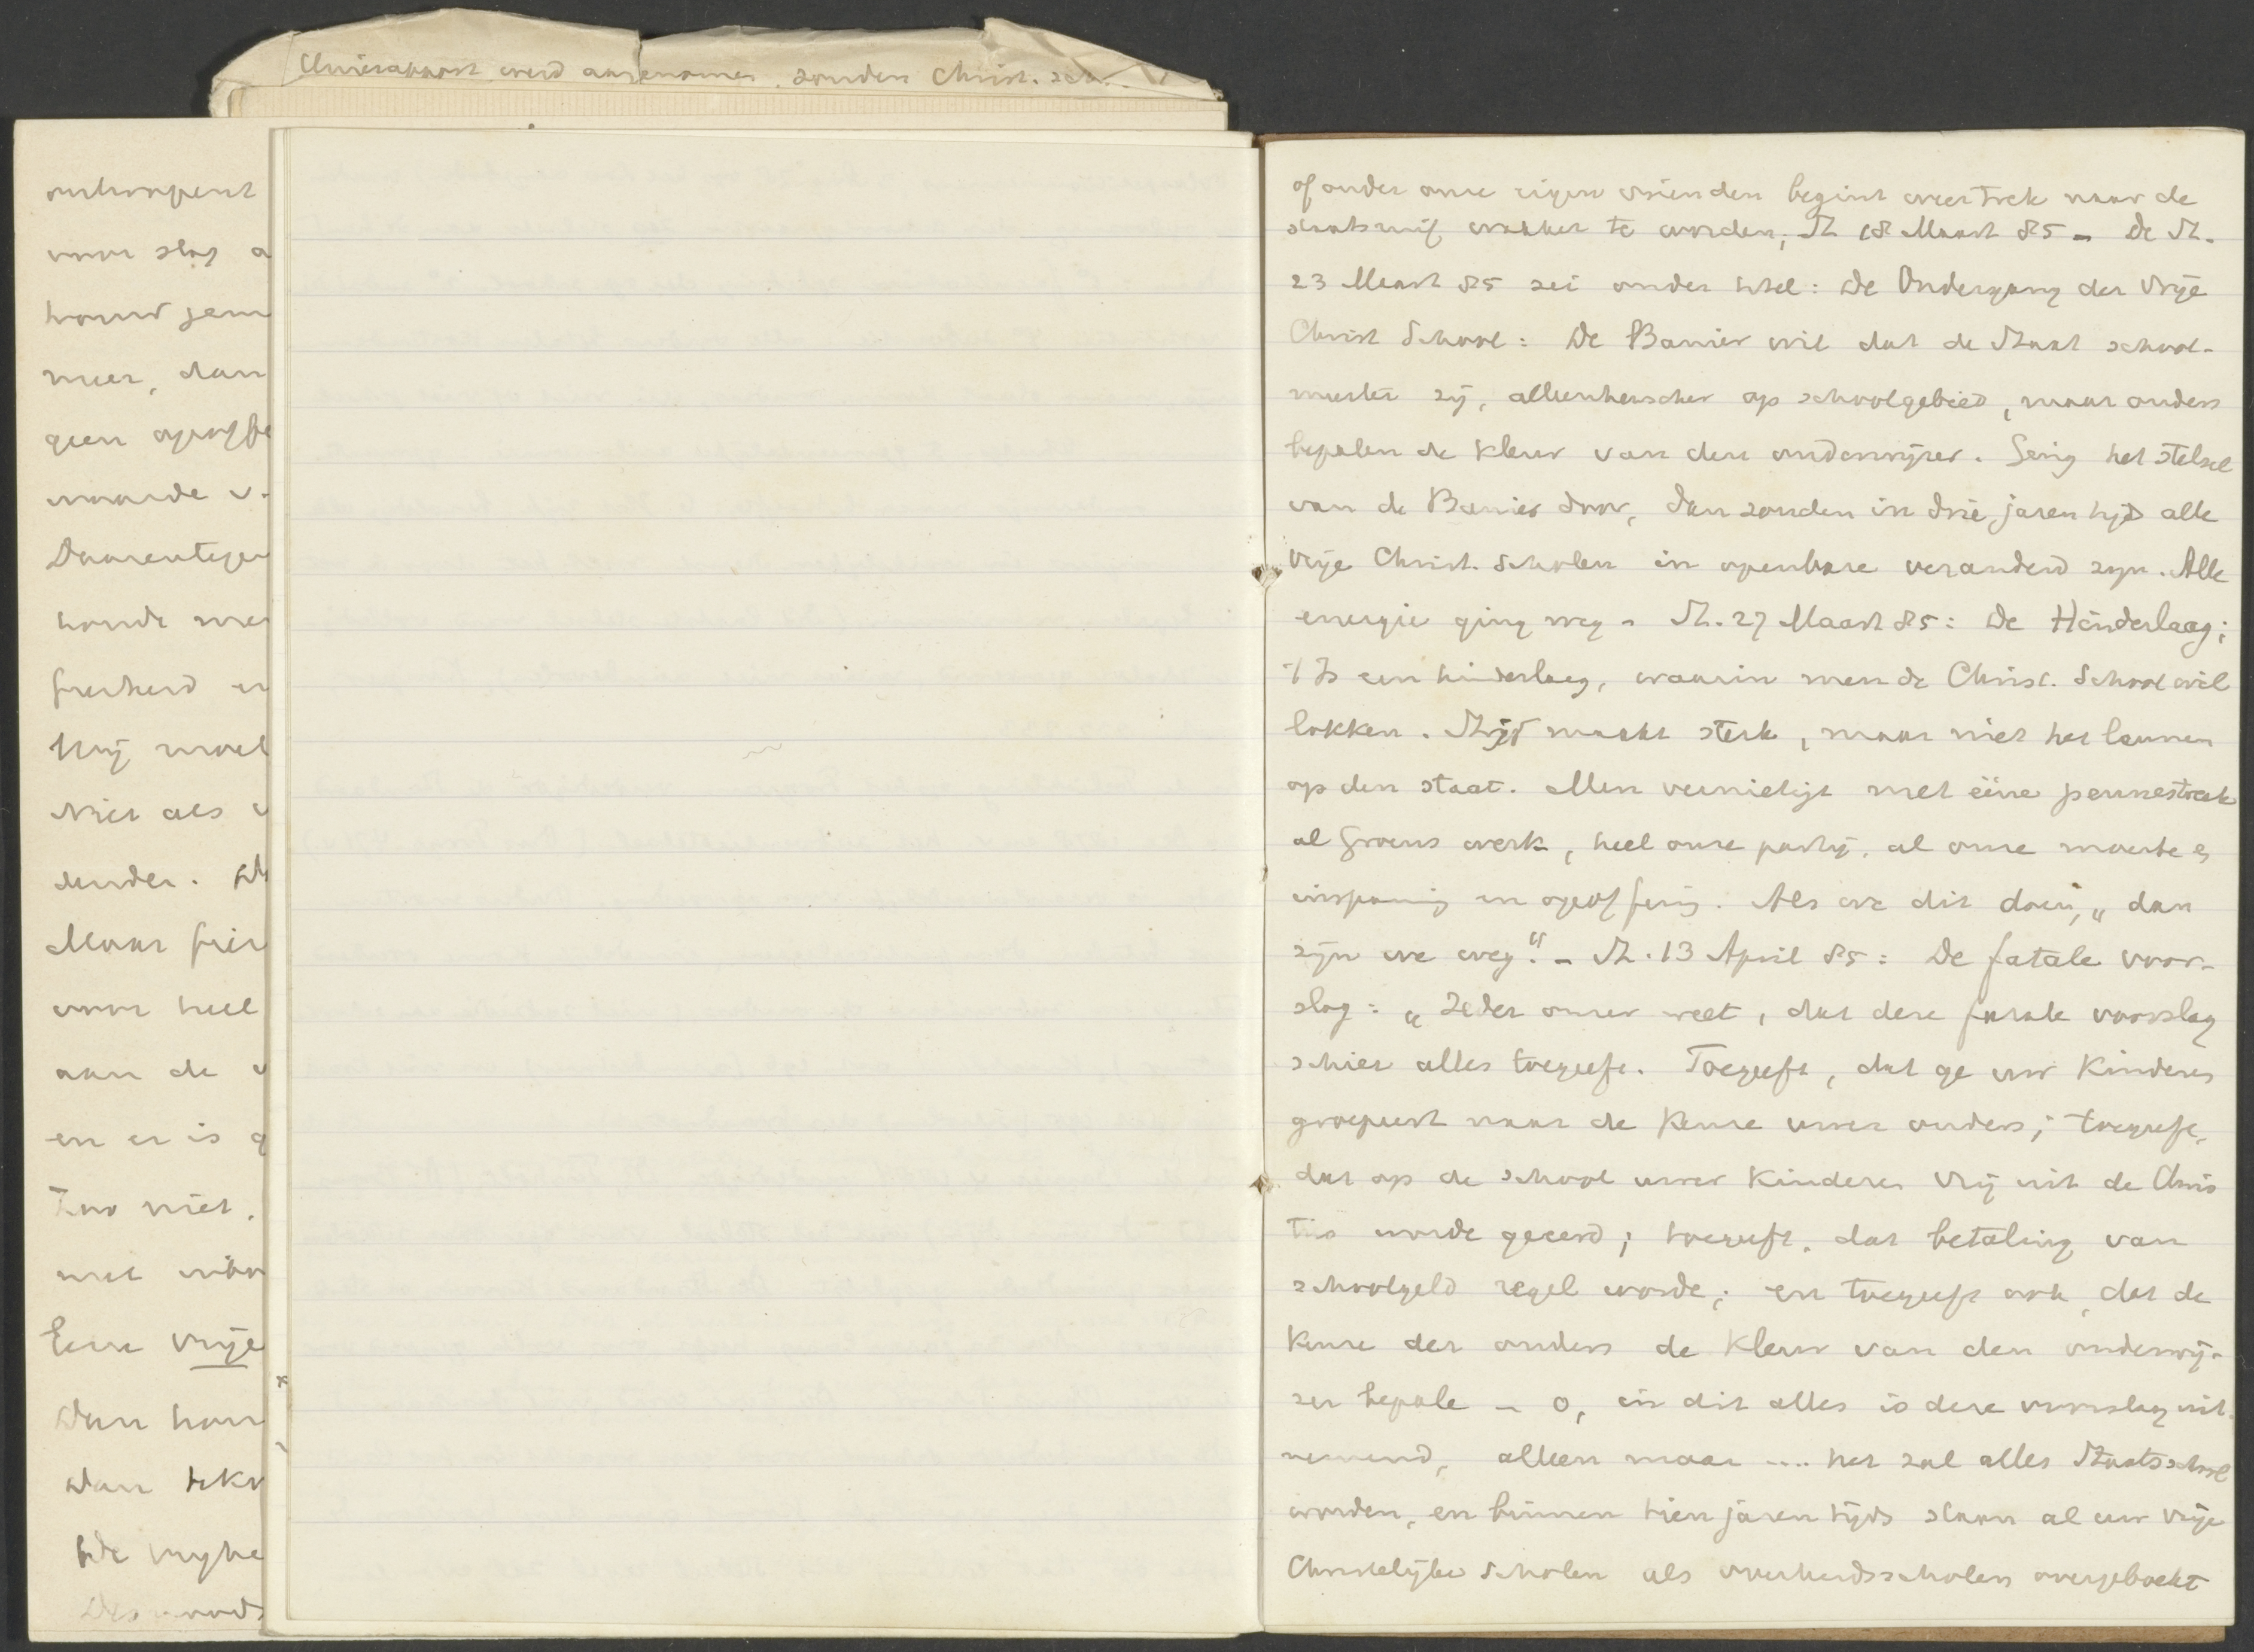 Unierapport werd aangenomen, zonder Christ. sch.
voor slag a
houw jem
meer, dan
geen opoffe
waarde v.
Daarentege
houde me
freiheid en
Hij moet
Niet als v
ander.
Maar frei
voor heel
aan de v
en er is g
Zoo niet.
met
Eene vrije
Dan hou
dan
de vryhe
of onder onze eigen vrienden begint weer trek naar de
staatsruif wakker te worden; St. 18 Maart 85 – De St.
23 Maart 85 zei onder titel: De Ondergang der Vrije
Christ School: De Banier wil dat de Staat school-
meester zij, alleenheerscher op schoolgebied, maar ouders
bepalen de kleur van den onderwijzer. Ging het stelsel
van de Banier door, dan zouden in drie jaren tijd alle
Vrije Christ. Scholen in openbare veranderd zijn. Alle
energie ging weg – St. 27 Maart 85: De Hinderlaag;
't Is een hinderlaag, waarin men de Christ. School wil
lokken. Strijd maakt sterk, maar niet het leunen
op den staat. Men vernietigt met ééne pennestreek
al Groens werk, heel onze partij, al onze moeite en
inspanning en opoffering. Als we dit doen, „dan
zijn we weg". – St. 13 April 85: De fatale voor-
slag: „Ieder onzer weet, dat deze fatale voorslag
schier alles toegeeft. Toegeeft, dat ge uw kinderen
groepeert naar de keuze uwer ouders; toegeeft,
dat op de school uwer kinderen vrij uit de Chris
tus worde geeerd; toegeeft, dat betaling van
schoolgeld regel worde; en toegeeft ook, dat de
keuze der ouders de kleur van den onderwij-
zer bepale – o, in dit alles is deze voorslag uit-
nemend, alleen maar .... het zal alles Staatsschool
worden, en binnen tien jaren tijds staan al uw vrije
Christelijke Scholen als overheidsscholen overgeboekt